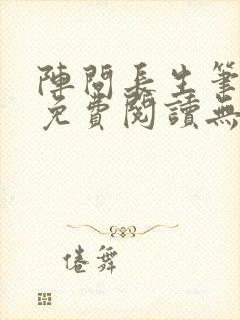 陣問長生筆
免費閱讀無
倦舞